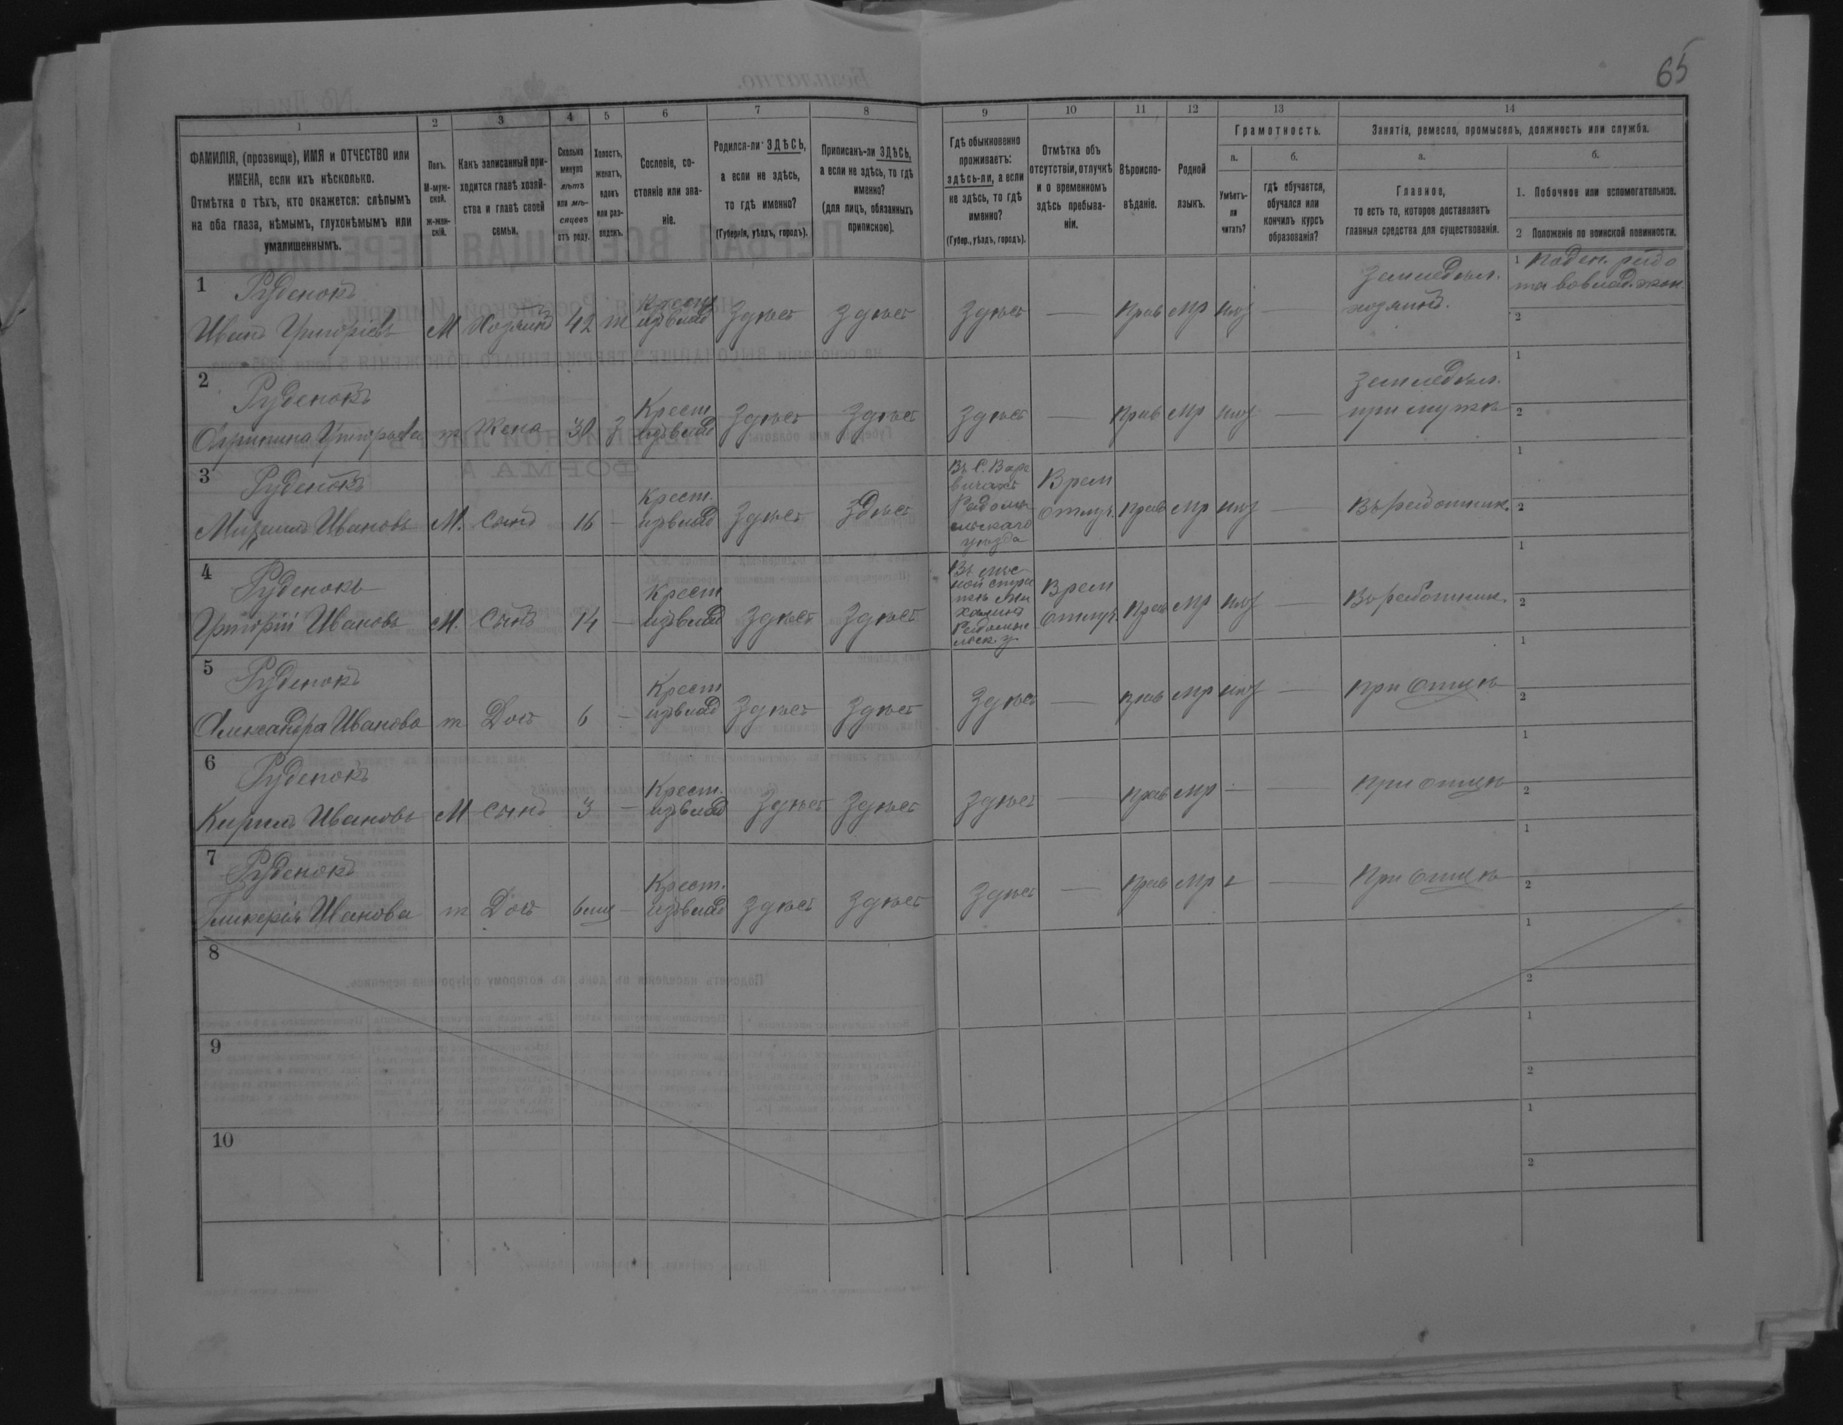 65
1
2
3
4
5
6
7
8
9
10
11
12
13
14
ФАМИЛІЯ, (прозвище), ИМЯ и ОТЧЕСТВО или
ИМЕНА, если ихъ нѣсколько.
Отмѣтка о тѣхъ, кто окажется: слѣпымъ
на оба глаза, нѣмымъ, глухонѣмымъ или
умалишеннымъ.
Полъ.
М-муж-
ской.
ж-жен-
скій.
Какъ записанный при-
ходится главѣ хозяй-
ства и главѣ своей
семьи.
Сколько
минуло
лѣтъ
или мѣ-
сяцевъ
отъ роду.
Холостъ,
женатъ,
вдовъ
или раз-
веденъ.
Сословіе, со-
стояніе или зва-
ніе.
Родился-ли ЗДѢСЬ,
а если не здѣсь,
то гдѣ именно?
(Губернія, уѣздъ, городъ).
Приписанъ-ли ЗДѢСЬ,
а если не здѣсь, то гдѣ
именно?
(для лицъ, обязанныхъ
припискою).
Гдѣ обыкновенно
проживаетъ:
здѣсь-ли, а если
не здѣсь, то гдѣ
именно?
(Губер., уѣздъ, городъ).
Отмѣтка объ
отсутствіи, отлучкѣ
и о временномъ
здѣсь пребыва-
ніи.
Вѣроиспо-
вѣданіе.
Родной
языкъ.
Грамотность.
а.
Умѣетъ-
ли
читать?
б.
гдѣ обучается,
обучался или
кончилъ курсъ
образованія?
Занятія, ремесло, промыселъ, должность или служба.
а.
Главное,
то есть то, которое доставляетъ
главныя средства для существованія.
б.
1. Побочное или вспомогательное.
2 Положеніе по воинской повинности.
1
Руденокъ
Иванъ Григорьевъ
М
Хозяинъ
42
ж
Крест
изъ влад
Здѣсь
Здѣсь
Здѣсь
—
Прав
Мр
нѣт
—
Земледѣл.
хозяинъ.
1 Поден. рабо
та во влад. экон.
2
2
Руденокъ
Агрипина Григорьева
ж
Жена
30
З
Крест
изъ влад
Здѣсь
Здѣсь
Здѣсь
—
Прав
Мр
нѣт
—
Земледѣл.
при мужѣ
1
2
3
Руденокъ
Михаилъ Ивановъ
М.
Сынъ
16
—
Крест.
изъ влад
Здѣсь
Здѣсь
Въ С. Вар
вичахъ
Радомы
сльскаго
уѣзда
Врем
отлуч.
Прав
Мр
нѣт
—
Въ работник.
1
2
4
Руденокъ
Григорій Ивановъ
М.
Сынъ
14
—
Крест
изъ влад
Здѣсь
Здѣсь
Врем
отлуч.
Прав
Мр
нѣт
—
Въ работник.
1
2
5
Руденокъ
Александра Иванова
ж
Доч
6
—
Крест
изъ влад
Здѣсь
Здѣсь
Здѣсь
—
Прав
Мр
нѣт
—
При отцѣ
1
2
6
Руденокъ
Кирилъ Ивановъ
М
Сынъ
3
—
Крест.
изъ влад
Здѣсь
Здѣсь
Здѣсь
—
Прав
Мр
—
—
При отцѣ
1
2
7
Руденокъ
Гликерія Иванова
ж
Доч
6 мѣс
—
Крест.
изъ влад
Здѣсь
Здѣсь
Здѣсь
—
Прав
Мр
—
При отцѣ
1
2
8
1
2
9
1
2
10
1
2